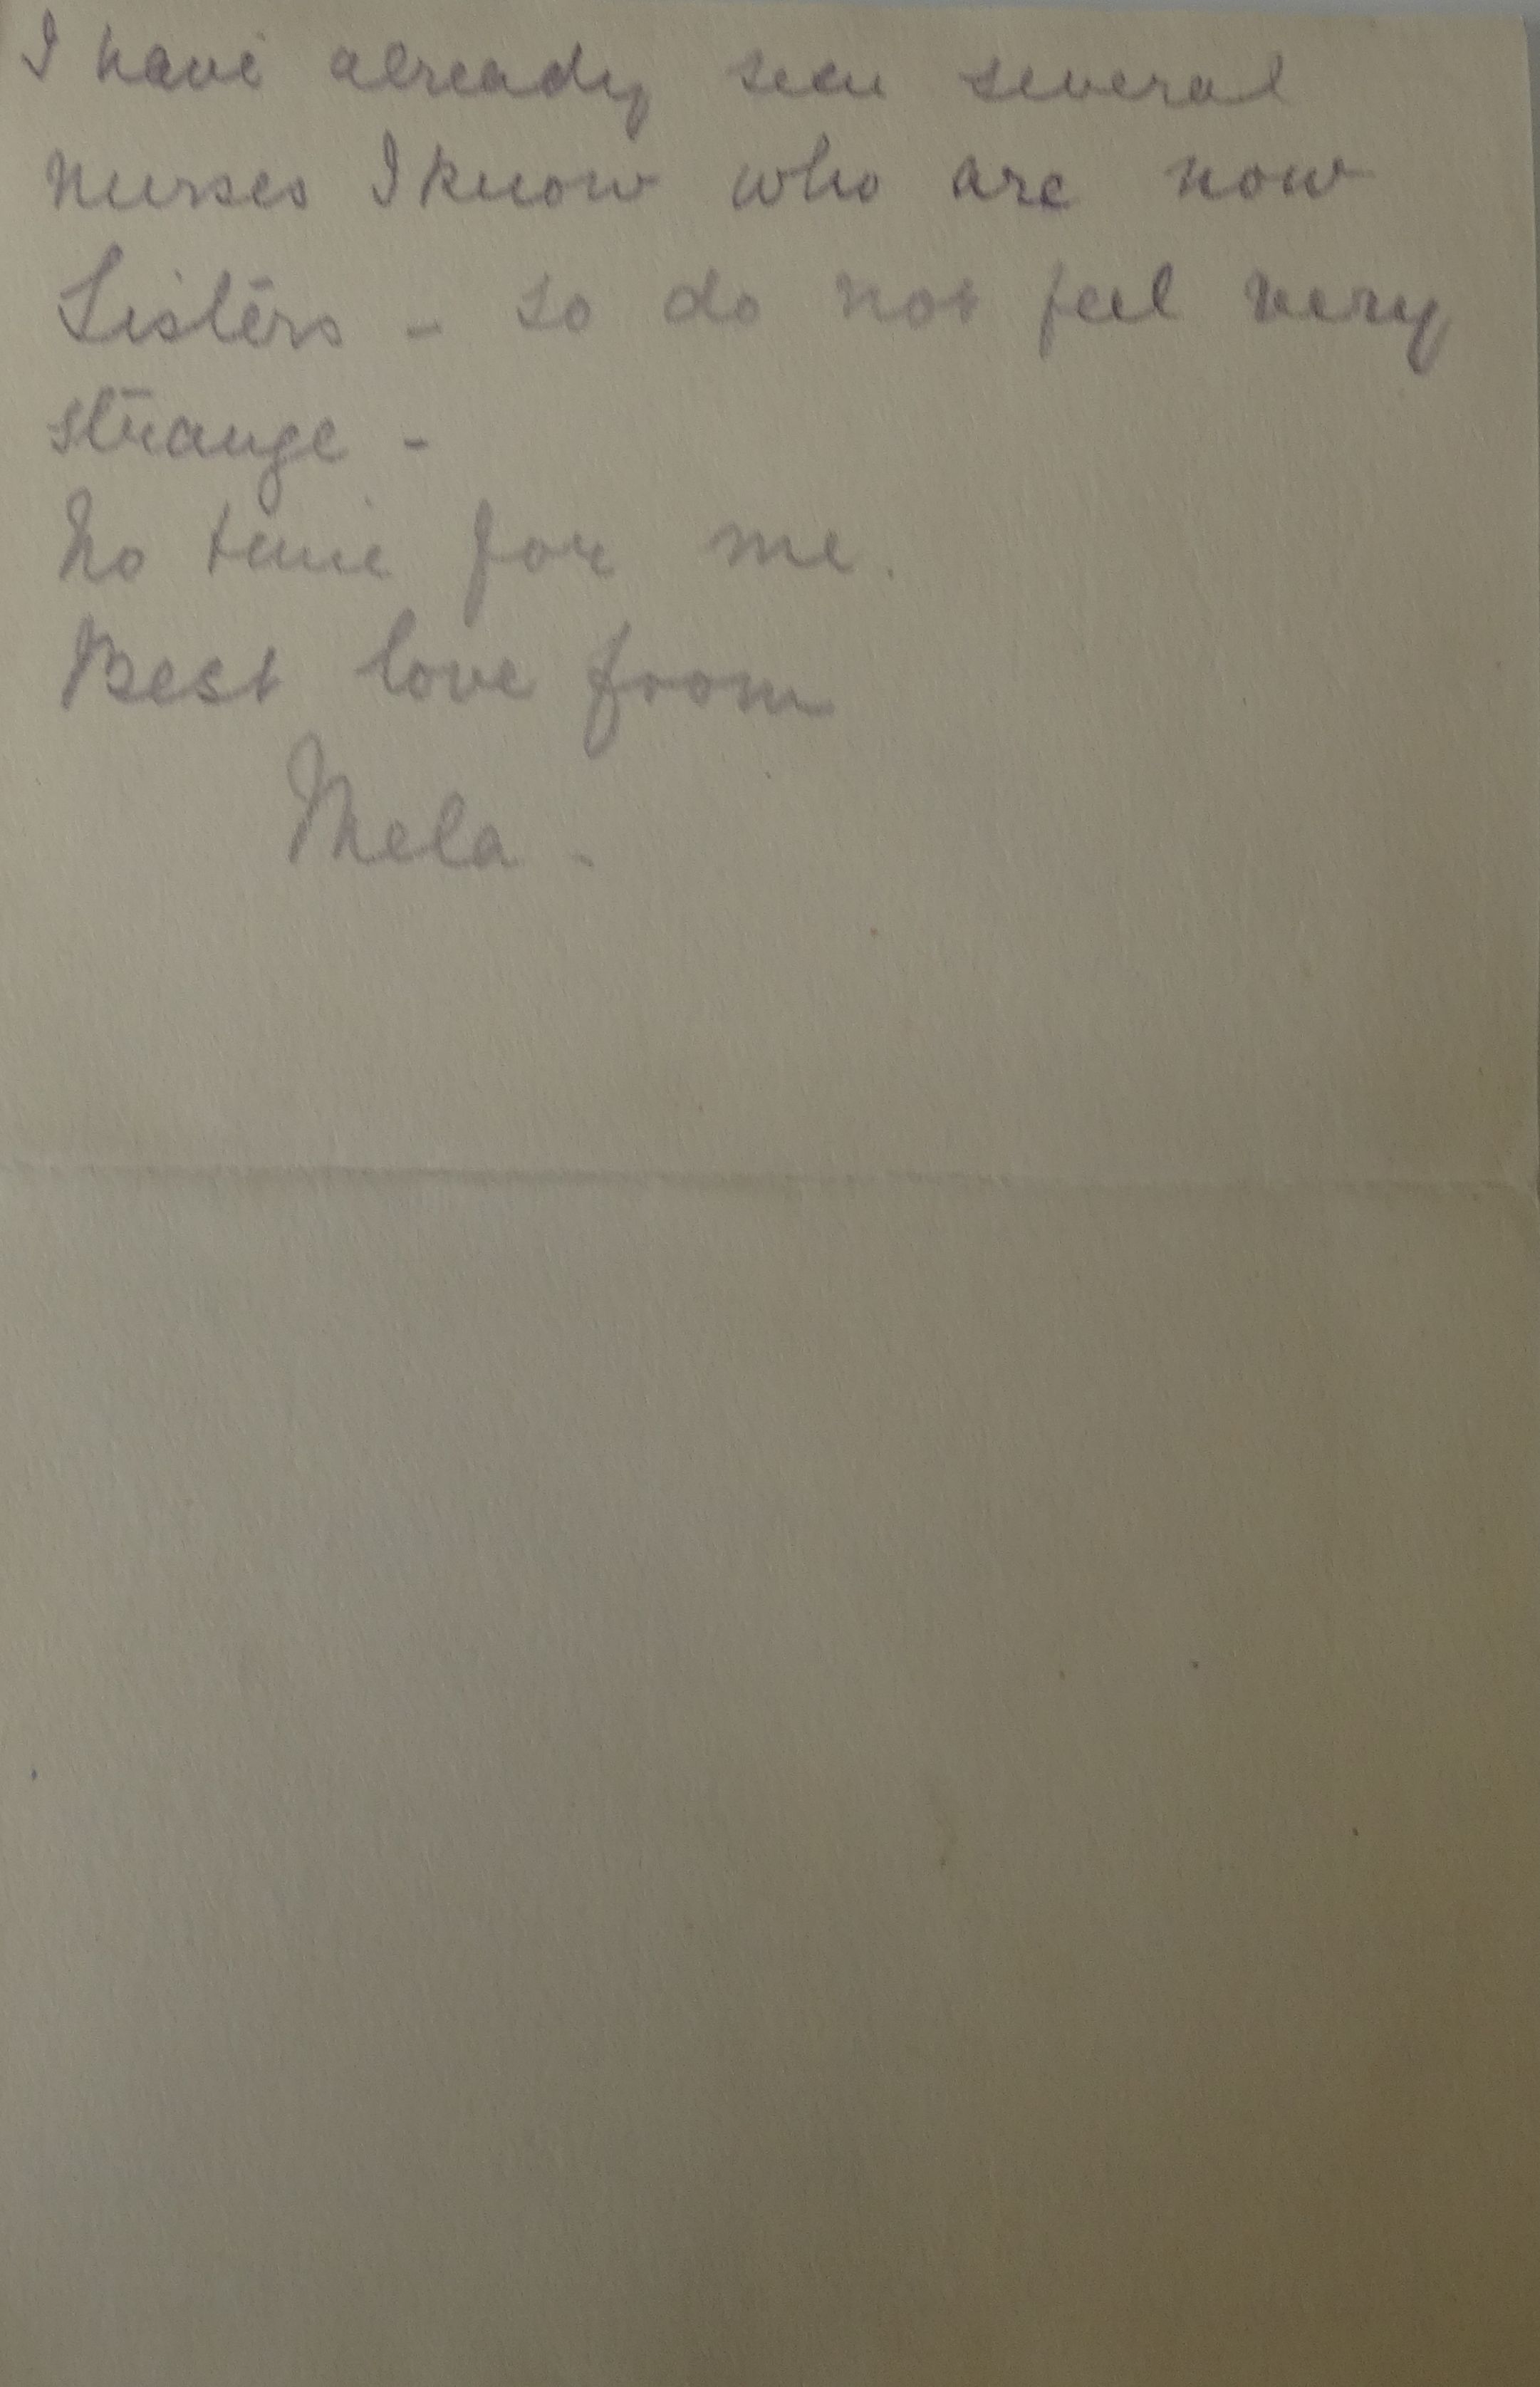 I have already seen several
nurses I know who are now
Sisters - so do not feel very
strange -
No time for me.
Best love from
Mela -